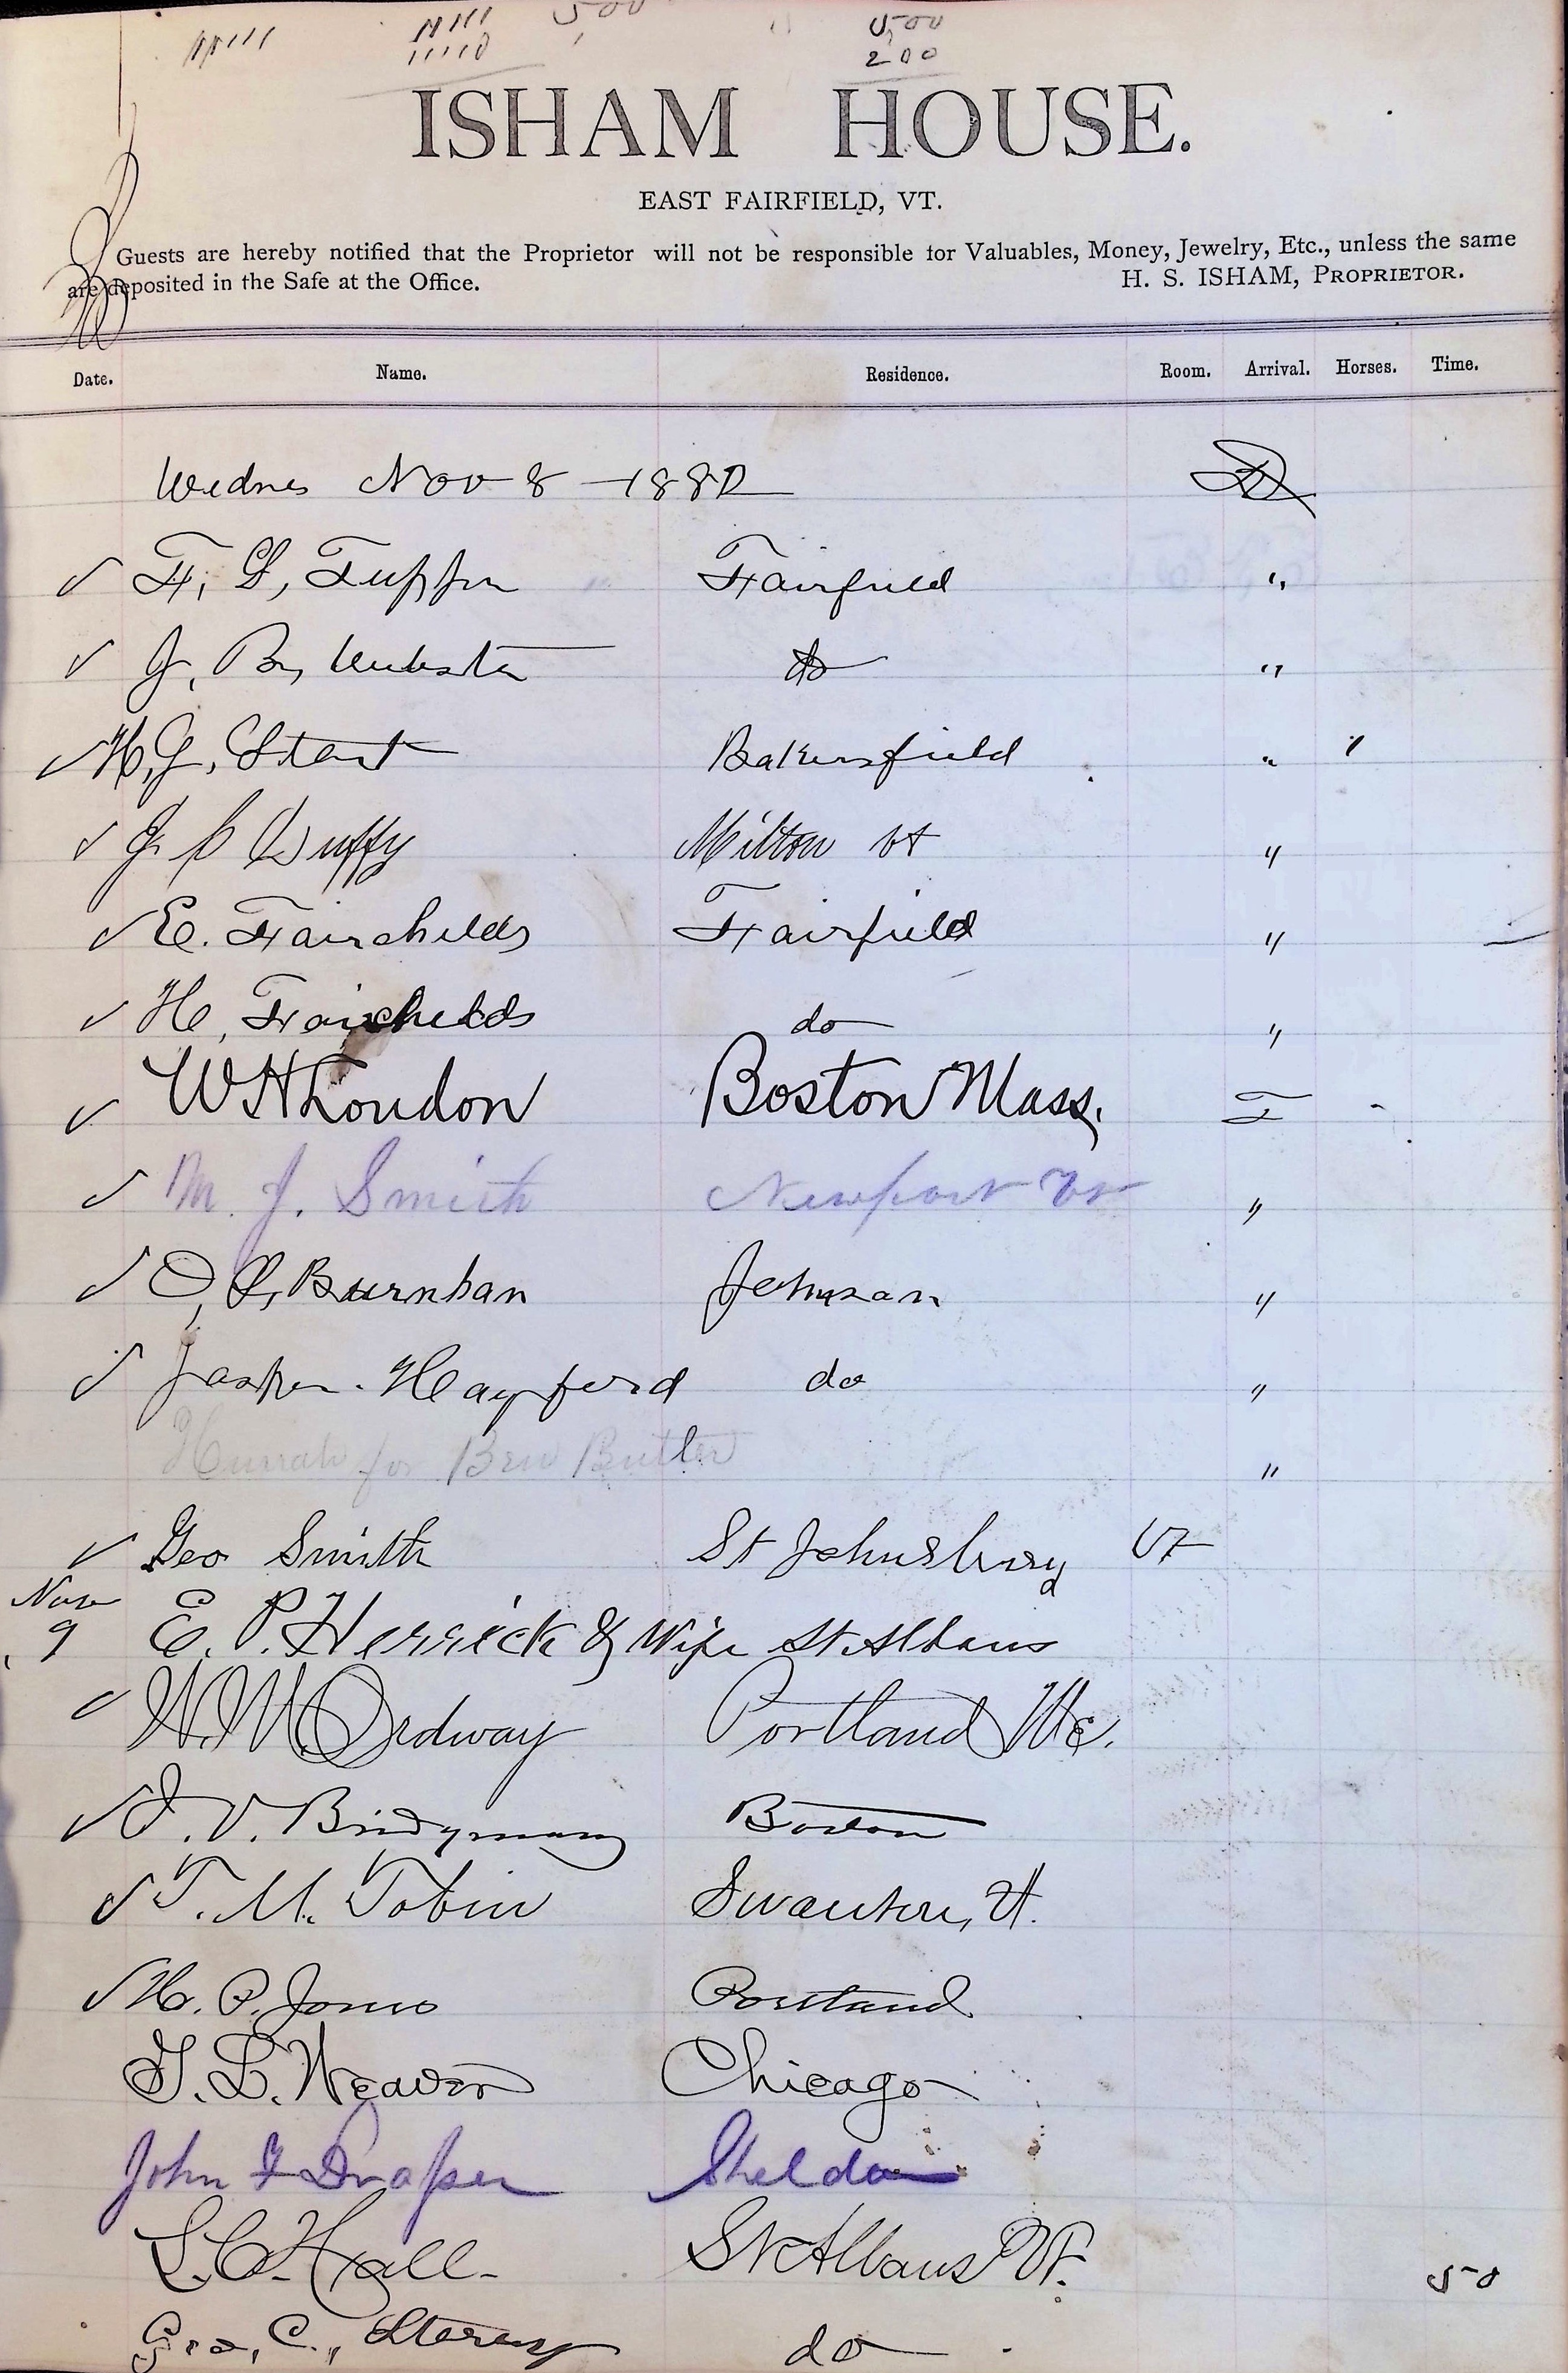 5,00
5,00
200
ISHAM HOUSE.
EAST FAIRFIELD, VT.
Guests are hereby notified that the Proprietor will not be responsible for Valuables, Money, Jewelry, Etc., unless the same
are deposited in the Safe at the Office. H. S. ISHAM, PROPRIETOR.
Date. Name. Residence. Room. Arrival. Horses. Time.
Wednes Nov 8 - 1882 D
✓ F, L, Tupper Fairfield "
✓ J, B, Webster do "
✓ H, J, Start Bakersfield " 1
✓ J. C Duffy Milton Vt "
✓ E. Fairchilds Fairfield "
✓ H, Fairchilds do "
✓ W H Loudon Boston Mass. T
✓ M. J. Smith Newport Vt "
✓ O, L, Burnhan Johnson "
✓ Jasper. Hayford do "
Hurrah for Ben Butler "
✓ Geo Smith St Johnsbury Vt
Nov
9 E. P. Herrick & Wife St Albans
✓ W. M. Ordway Portland Me.
✓ J. V. Bridgman Boston
✓ T. M. Tobin Swanton, Vt.
✓ H. P. Jones Portland
G. L. Weaver Chicago
John F Draper Sheldon
L. C. Hall - St Albans Vt. 50
Geo, C., do